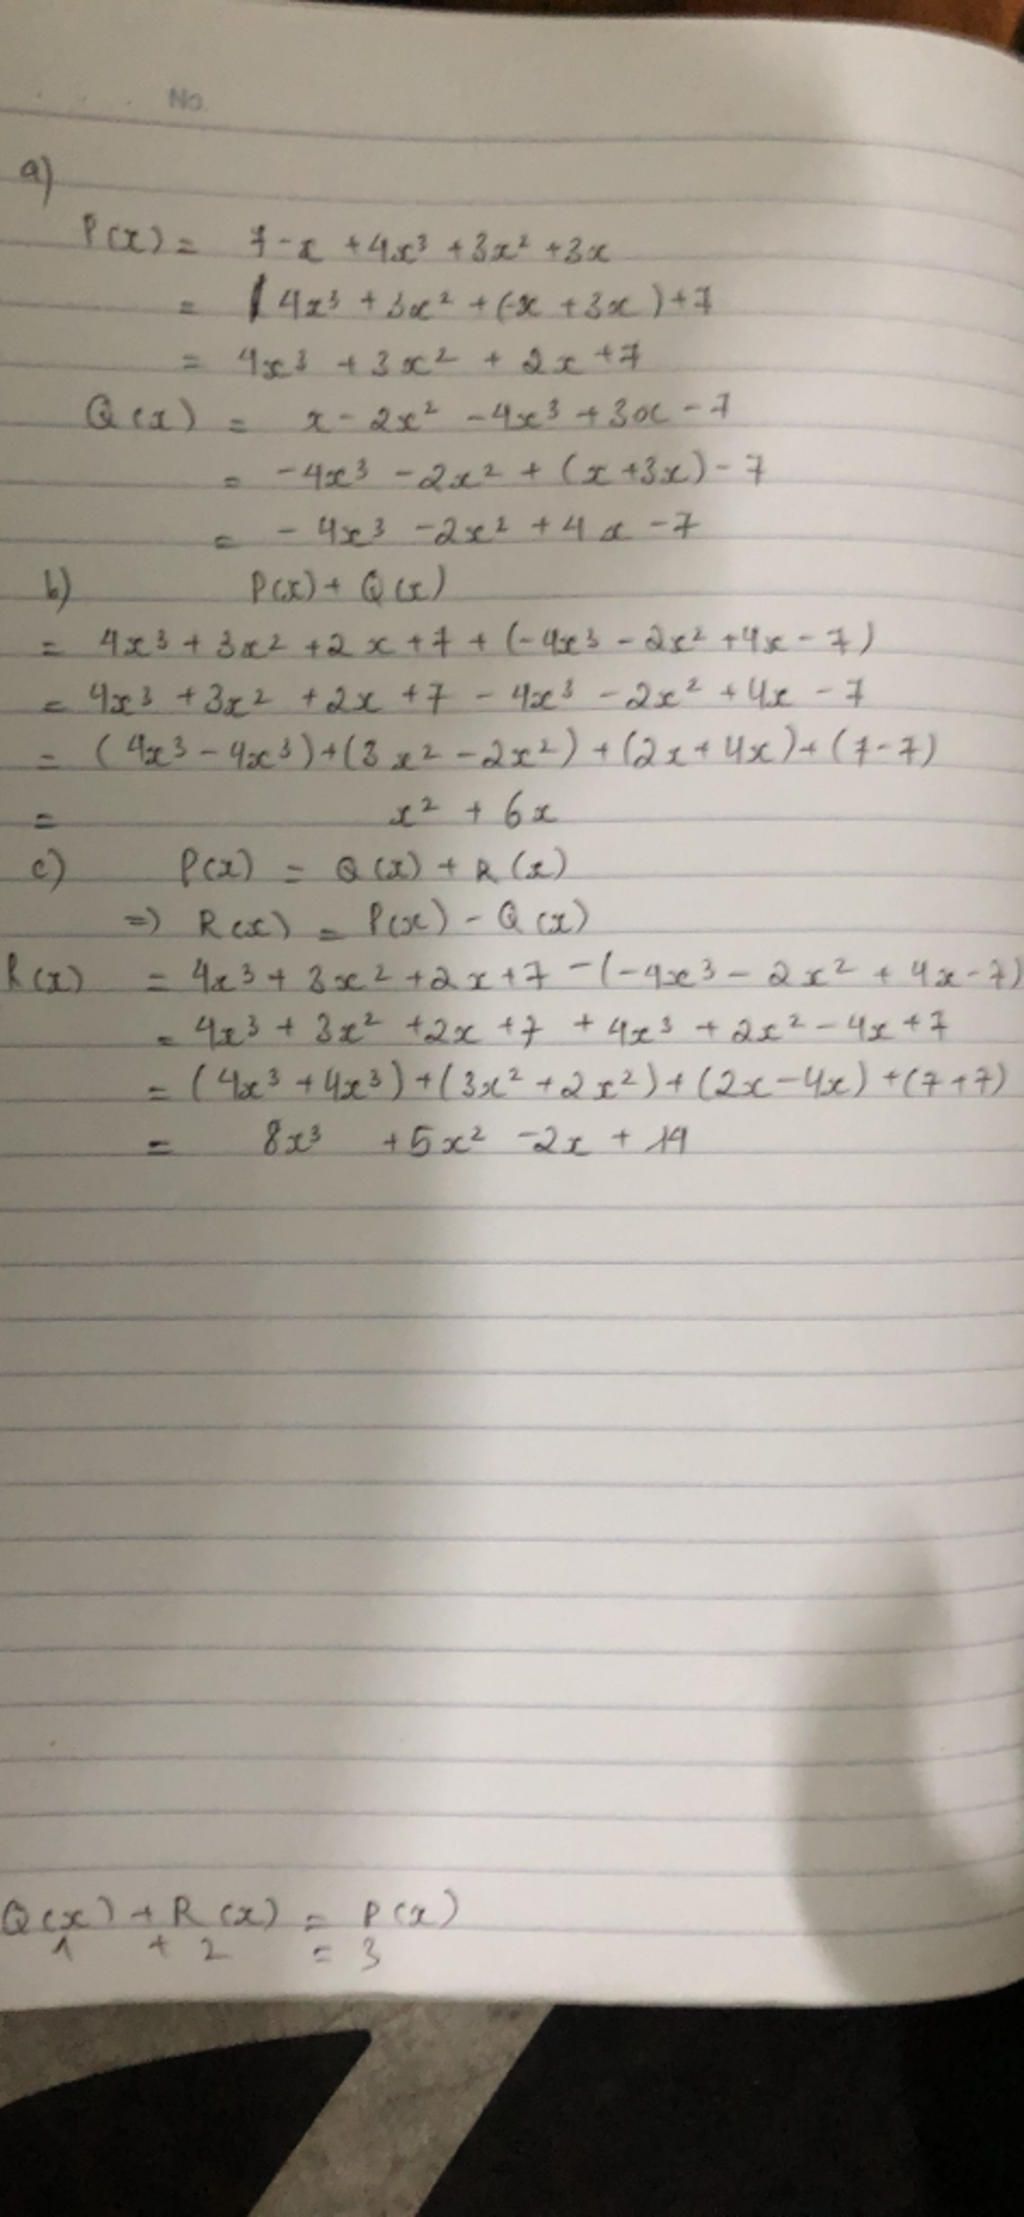 No.
a)
P(x) = 7 - x + 4x³ + 3x² + 3x
= 4x³ + 3x² + (-x + 3x) + 7
= 4x³ + 3x² + 2x + 7
Q(x) = x - 2x² - 4x³ + 3x - 7
= -4x³ - 2x² + (x + 3x) - 7
= -4x³ - 2x² + 4x - 7
b) P(x) + Q(x)
= 4x³ + 3x² + 2x + 7 + (-4x³ - 2x² + 4x - 7)
= 4x³ + 3x² + 2x + 7 - 4x³ - 2x² + 4x - 7
= (4x³ - 4x³) + (3x² - 2x²) + (2x + 4x) + (7 - 7)
= x² + 6x
c) P(x) = Q(x) + R(x)
=> R(x) = P(x) - Q(x)
R(x) = 4x³ + 3x² + 2x + 7 - (-4x³ - 2x² + 4x - 7)
= 4x³ + 3x² + 2x + 7 + 4x³ + 2x² - 4x + 7
= (4x³ + 4x³) + (3x² + 2x²) + (2x - 4x) + (7 + 7)
= 8x³ + 5x² - 2x + 14
Q(x) + R(x) = P(x)
1 + 2 = 3